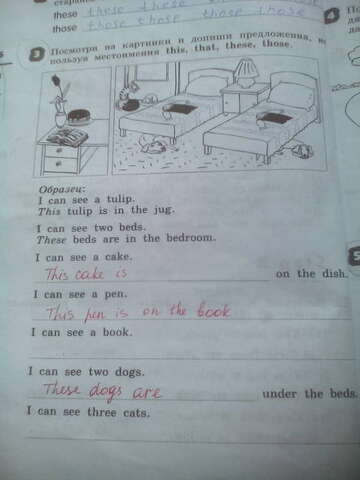 these these these these
those those those those those
Посмотри на картинки и допиши предложения, ис
пользуя местоимения this, that, these, those.
Образец:
I can see a tulip.
This tulip is in the jug.
I can see two beds.
These beds are in the bedroom.
I can see a cake.
This cake is on the dish.
I can see a pen.
This pen is on the book
I can see a book.
I can see two dogs.
These dogs are under the beds.
I can see three cats.